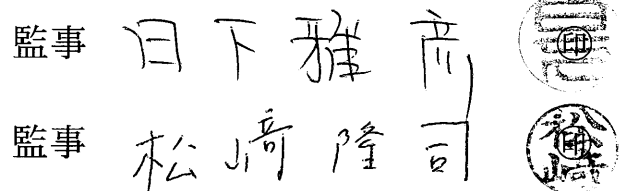 監事 日下雅彦 印
監事 松﨑隆司 印